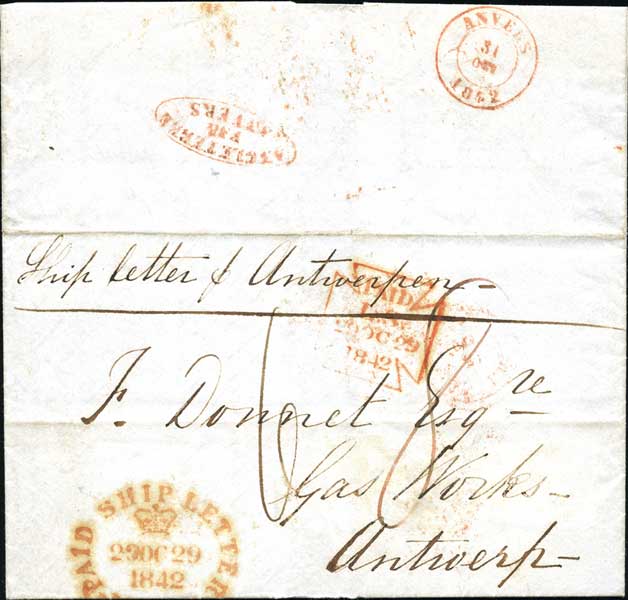 ANVERS
31
OCT
1842
ANGLETERRE
PAR
ANVERS
Ship letter & Antwerpen
PAID
29 OC 29
1842
F. Donnet Esqre
Gas Works
Antwerp
PAID SHIP LETTER
29 OC 29
1842